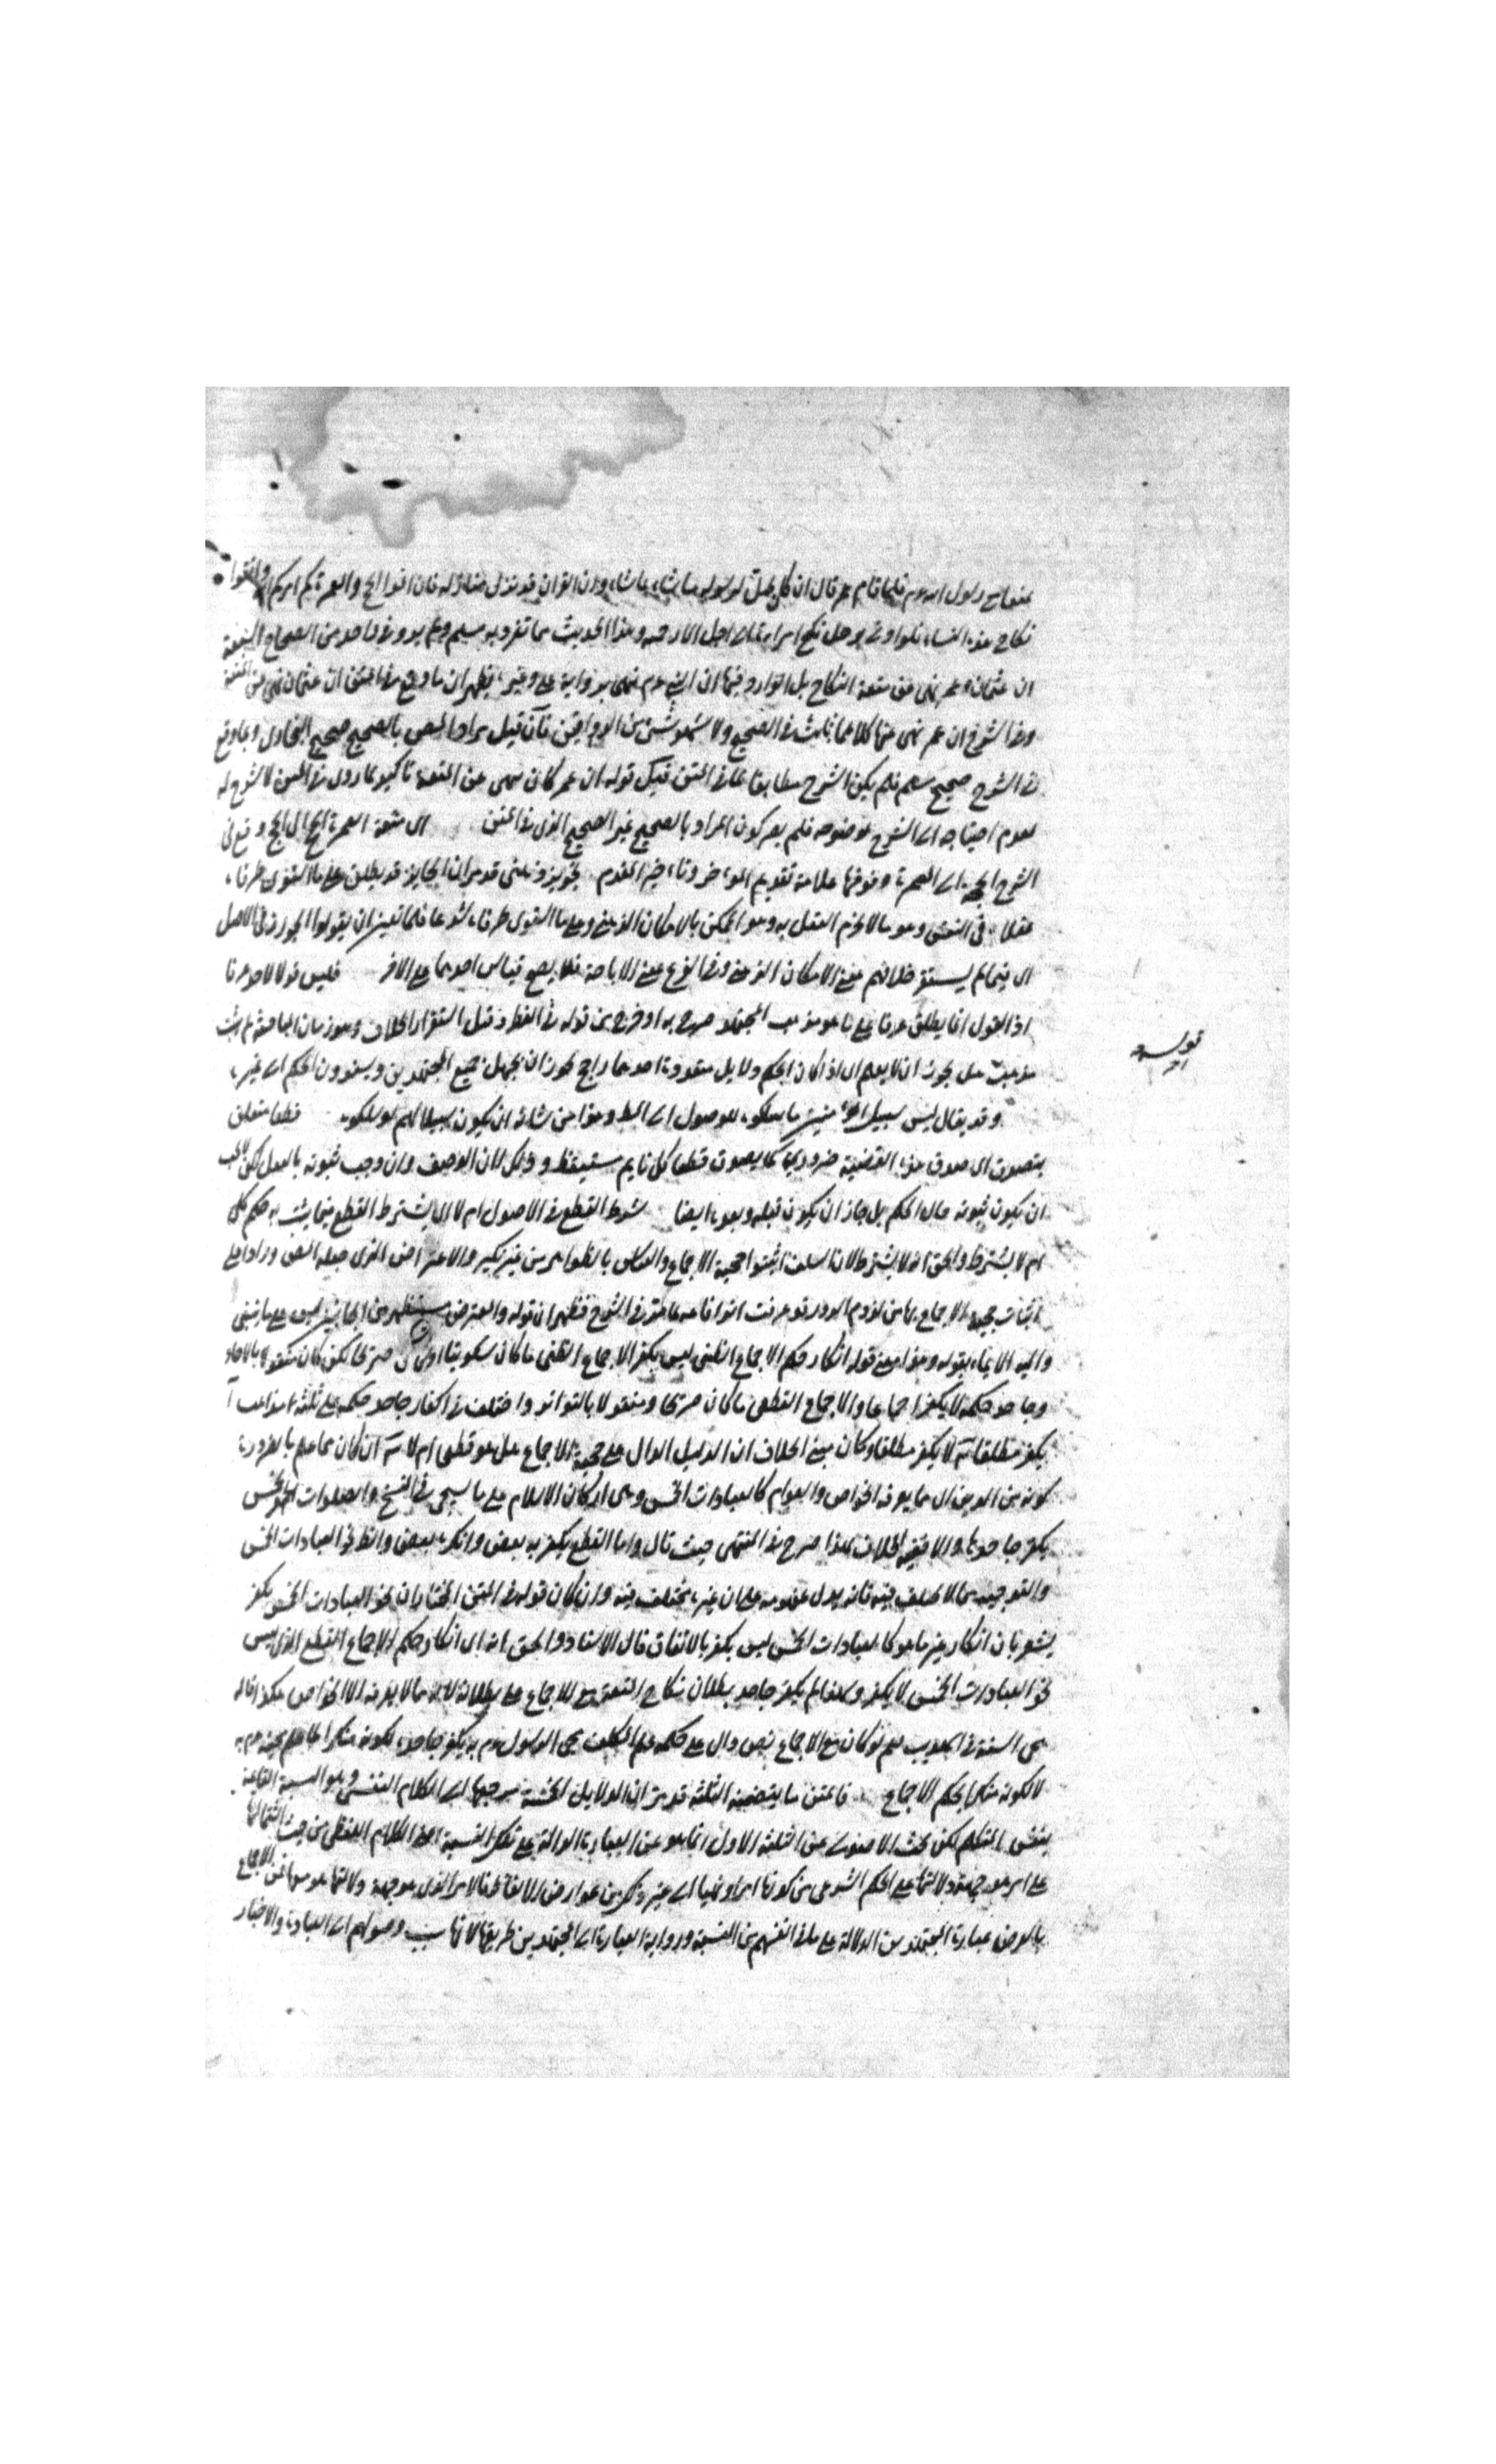 متعنا مع رسول الله عم فلما قام عمر قال ان الله يحل لرسوله ما شاء بما شاء وان القران قد نزل منازله فان اتموا الحج والعمرة كما امركم الله واتقوا
نكاح هذه النساء فلو اوتى برجل نكح امراة الى اجل الا رجمته وهذا الحديث مما تفرد به مسلم ولم يرو في واحد من الصحاح
ان عثمان وعمر نهى عن متعة النكاح بل الوارد فيها ان النبي عم نهى برواية علي وغيره فظهر ان ما وقع في المتن ان عثمان نهى عن المتعة
وفي الشرح ان عمر نهى عنها كلاهما ثابت في الصحيح ولا شئ من الروايتين فان قيل مراد المص بالصحيح صحيح البخاري وبما وقع
في الشرح صحيح مسلم فلم يكن الشرح مطابقا لما في المتن قيل قوله ان عمر كان ينهى عن المتعة تاكيد لما روى في المتن لا شرح له
لعدم احتياجه الى الشرح لوضوحه فلم يضر كون المراد بالصحيح غير الصحيح الذي في المتن اى متعة العمرة الى الحج وقع في
الشرح الحج الى العمرة وفوقها علامة تقديم المؤخر وتاخير المقدم تجويز وظني قد مر ان الجايز قد يطلق على ما استوى طرفاه
عقلا في النفس وهو ما لا يجزم العقل به وهو الممكن بالامكان الذهني وعلى ما استوى طرفاه شرعا فلما تعين ان يقولوا المجوز في الاصل
اى فيما لم يستقر خلافهم معنى الامكان الذهني وفي الفرع معنى الاباحة فلا يصح قياس احدهما على الاخر فليس قولا لاحد عرفا
اذ القول انما يطلق عرفا على ما هو مذهب المجتهد صرح به او خرج من قوله في النظر وقبل استقرار الخلاف وهو زمان المباحثة لم يثبت
مذهب هل يجوز ان لا يعلم اى اذا كان الحكم دلايل متعددة احدها راجح يجوز ان يجهل جميع المجتهدين ويسندون الحكم الى غيره
وقد يقال ليس سبيل المؤمنين ما سلكوه للوصول الى المط وهذا من شانه ان يكون سبيلا لهم لو سلكوه قطعا متعلق
بتصدق اى صدق هذه القضية ضروري كما يصدق قطعا كل نايم مستيقظ وذلك لان الوصف وان وجب ثبوته بالفعل لكن لا يجب
ان يكون ثبوته حال الحكم بل جاز ان يكون قبله وبعده ايضا شرط القطع في الاصول ام لا اى يشترط القطع فيما يثبت به حكم كلي
ام لا يشترط والحق انه لا يشترط لان السلف اثبتوا حجية الاجماع والقياس بالظواهر من غير نكير والاعتراض الذي جعله المص واردا على
اثبات حجية الاجماع بها من لزوم الدور قد عرفت اندفاعه بما مر في الشرح فظهر ان قوله والمعترض مستظهر من الجانبين ليس على ما ينبغي
واليه الايماء بقوله وهذا معنى قوله انكار حكم الاجماع الظني ليس بكفر الاجماع الظني ما كان سكوتيا او كان صريحا لكن كان منقولا بالاحاد
وجاحد حكمه لا يكفر اجماعا والاجماع القطعي ما كان صريحا ومنقولا بالتواتر واختلف في اكفار جاحد حكمه على ثلثة مذاهب آ
يكفر مطلقا ب لا يكفر مطلقا وكان مبنى الخلاف ان الدليل الدال على حجية الاجماع هل هو قطعي ام لا ج ان كان مما علم بالضرورة
كونه من الدين اى مما يعرفه الخواص والعوام كالعبادات الخمس وهي اركان الاسلام على ما سيجئ في النسخ والصلوات الخمس
يكفر جاحدها والا ففيه الخلاف هكذا صرح في المنتهى حيث قال واما القطعي يكفر به بعض وانكره بعض والظ في العبادات الخمس
والتوحيد مما لا يختلف فيه فانه يدل بمفهومه على ان غيره مختلف فيه وان كان قوله في المتن المختار ان نحو العبادات الخمس يكفر
يشعر بان انكار غير ما هو كالعبادات الخمس ليس بكفر بالاتفاق قال الاستاذ والحق انه اى انكار حكم الاجماع القطعي الذي ليس
نحو العبادات الخمس لا يكفر ولهذا لم يكفر جاحد بطلان نكاح المتعة مع الاجماع على بطلانه لانه مما لا يعرفه الا الخواص هكذا قاله
محي السنة في التهذيب نعم لو كان مع الاجماع نص دال على حكمه علم المكلف مجئ الرسول عم به يكفر جاحده لكونه منكرا لما علم مجيئه عم به
لا لكونه منكرا لحكم الاجماع فالمتن ما يتضمنه الثلثة قد مر ان الدلايل الخمسة مرجعها الى الكلام النفسي وهو النسبة القايمة
بنفس المتكلم لكن بحث الاصولي عن الثلثة الاول انما هو عن العبارة الدالة على تلك النسبة اعني الكلام اللفظي من حيث اشتمالها
على امر هو جهة دلالتها على الحكم الشرعي من كونها امرا ونهيا الى غير ذلك من عوارض الالفاظ فالامر الذي هو جهة دلالتها هو متن الاجماع
بالعرض عبارة المجتهدين الدالة على ما في انفسهم من النسبة ورواية العبارة الى المجتهدين طريقها لانها سبب وصولهم الى العبادة والاخبار